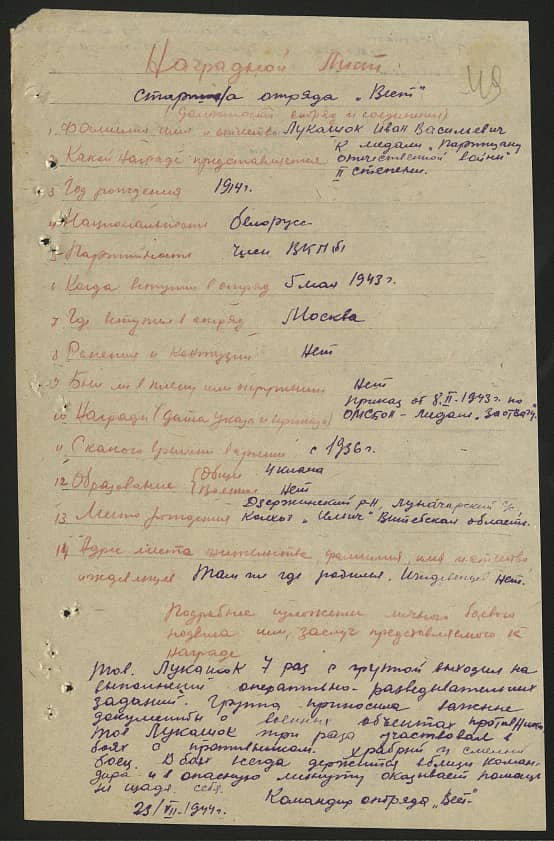 Наградной Лист
119
Старшина отряда „Вест“
(должность отряд и соединения)
1. Фамилия имя и отчество Лукашок Иван Васильевич
2. Какой награде представляется к медали „Партизану
отечественной войны“
II степени.
3. Год рождения 1914 г.
4. Национальность белорусс
5. Партийность член ВКП(б)
6. Когда вступил в отряд 5 мая 1943 г.
7. Где вступил в отряд Москва
8. Ранения и контузии Нет
9. Был ли в плену или окружении Нет
Приказ от 8.II-1943 г. по
10. Награды (дата указа и приказа) ОМСБОН - медаль „За отвагу“.
11. С какого времени в армии с 1936 г.
12. Образование (Общее 4 класса
(Военное Нет
Дзержинский р-н, Луначарский с/с
13. Место рождения Колхоз „Ильич“ Витебская область.
14. Адрес места жительства, фамилия, имя и отчество
иждевенцев Там же где родился. Иждевенцев нет.
Подробное изложение личного боевого
подвига или заслуг представляемого к
награде
Тов. Лукашок 7 раз с группой выходил на
выполнении оперативно-разведывательных
заданий. Группа приносила важные
документы о военных объектах противника
Тов Лукашок три раза участвовал в
боях с противником. Храбрый и смелый
боец. В боях всегда держится вблизи коман-
дира и в опасную минуту оказывает помощь
не щадя себя.
Командир отряда „Вест“
23/VII-1944 г.